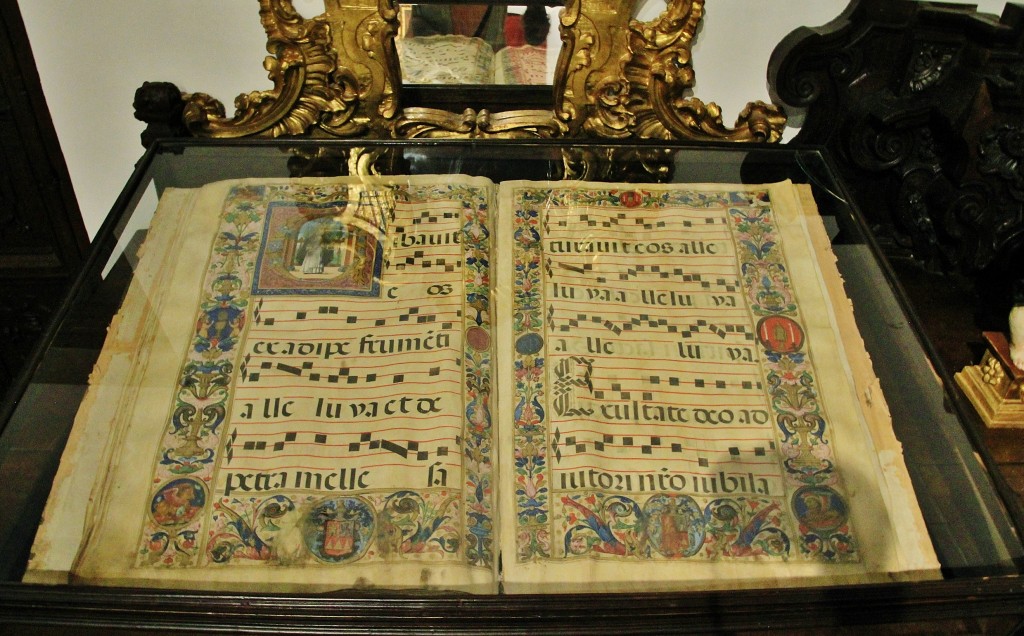 cbavit
e os
ex adipe frumēti
alle luya et de
petra melle sa
turavit eos alle
luya alleluya
alleluya.
Exultate deo ad
iutori nrō iubila